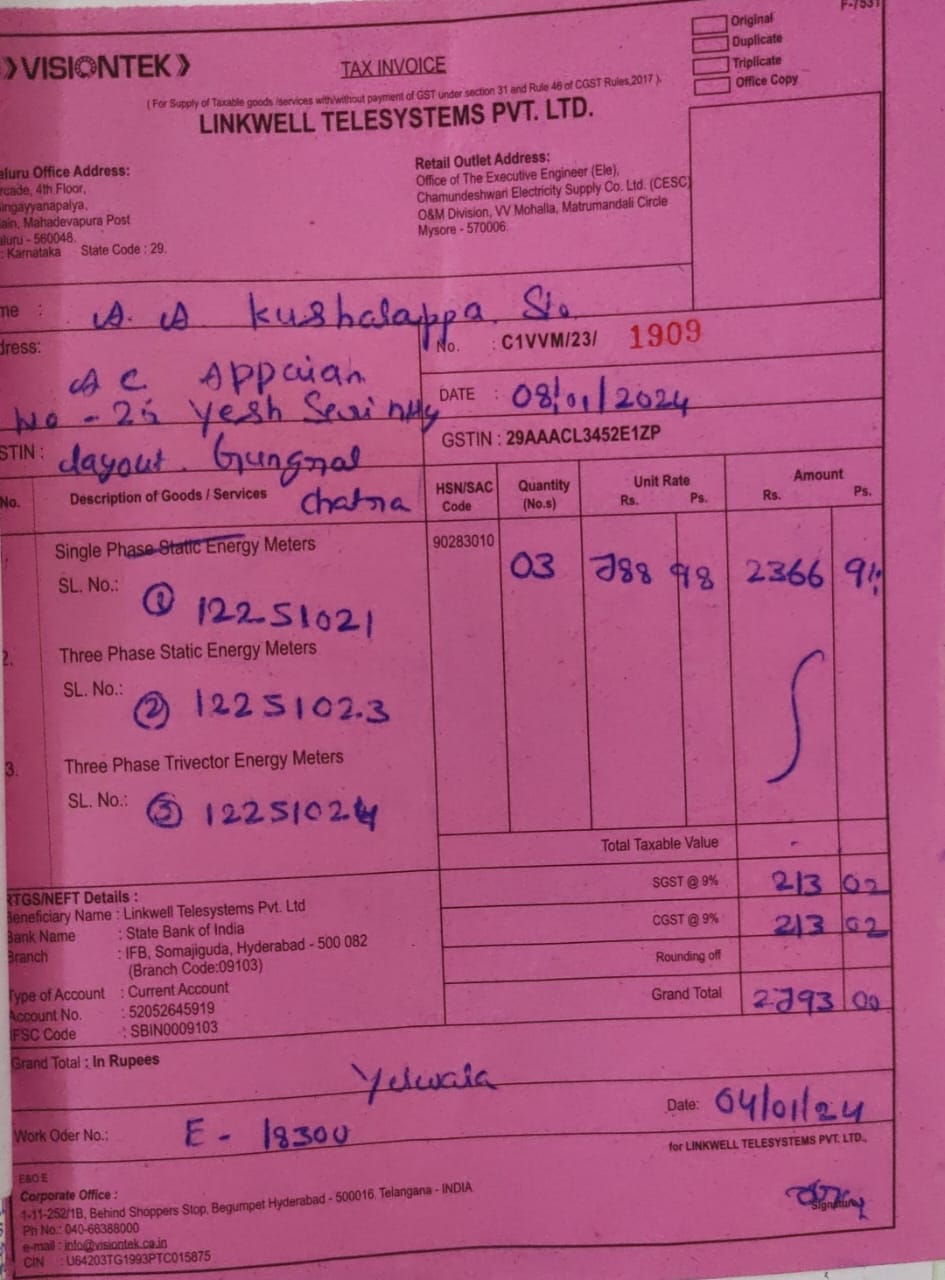 F-7531
Original
Duplicate
Triplicate
Office Copy
VISIONTEK
TAX INVOICE
( For Supply of Taxable goods /services with/without payment of GST under section 31 and Rule 46 of CGST Rules,2017 ).
LINKWELL TELESYSTEMS PVT. LTD.
aluru Office Address:
rcade, 4th Floor,
ingayyanapalya,
ain, Mahadevapura Post
aluru - 560048.
: Karnataka State Code : 29.
Retail Outlet Address:
Office of The Executive Engineer (Ele),
Chamundeshwari Electricity Supply Co. Ltd. (CESC)
O&M Division, VV Mohalla, Matrumandali Circle
Mysore - 570006.
me : A. A Kushalappa S/o
dress: A C Appaiah
No - 25 Yesh
STIN : Layout.
No. : C1VVM/23/ 1909
DATE : 08/01/2024
GSTIN : 29AAACL3452E1ZP
No. Description of Goods / Services HSN/SAC Code Quantity (No.s) Unit Rate Rs. Ps. Amount Rs. Ps.
Single Phase Static Energy Meters 90283010 03 788 98 2366
SL. No.: ① 12251021
2. Three Phase Static Energy Meters
SL. No.: ② 12251023
3. Three Phase Trivector Energy Meters
SL. No.: ③ 12251024
Total Taxable Value -
SGST @ 9% 213 02
CGST @ 9% 213 02
Rounding off
Grand Total 2793 00
RTGS/NEFT Details :
Beneficiary Name : Linkwell Telesystems Pvt. Ltd
Bank Name : State Bank of India
Branch : IFB, Somajiguda, Hyderabad - 500 082
(Branch Code:09103)
Type of Account : Current Account
Account No. : 52052645919
IFSC Code : SBIN0009103
Grand Total : In Rupees
Yelwala
Work Oder No.: E - 18300
Date: 04/01/24
for LINKWELL TELESYSTEMS PVT. LTD.,
Signatory
E&O E
Corporate Office :
1-11-252/1B, Behind Shoppers Stop, Begumpet Hyderabad - 500016. Telangana - INDIA
Ph No.: 040-66388000
e-mail : info@visiontek.co.in
CIN : U64203TG1993PTC015875